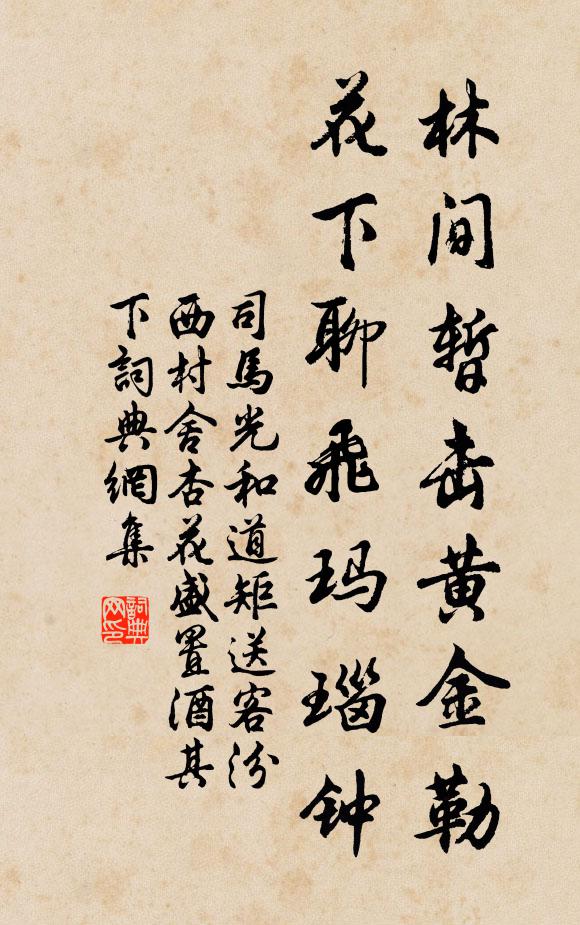 林间暫击黄金勒
花下聊飛玛瑙钟
司馬光和道矩送客汾
西村舍杏花盛置酒其
下詞典網集
詞典网印